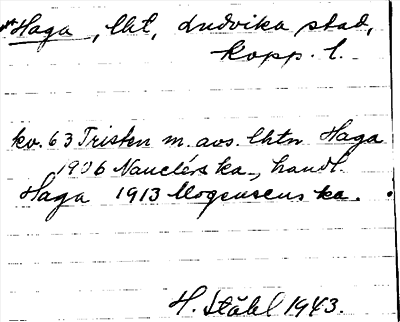 Haga, lht, Ludvika stad,
Kopp. l.
kv. 63 Tristen m. avs. lhtn Haga
1906 Nauclérs ka, handl.
Haga 1913 Mogensens ka.
H. Ståhl 1943.